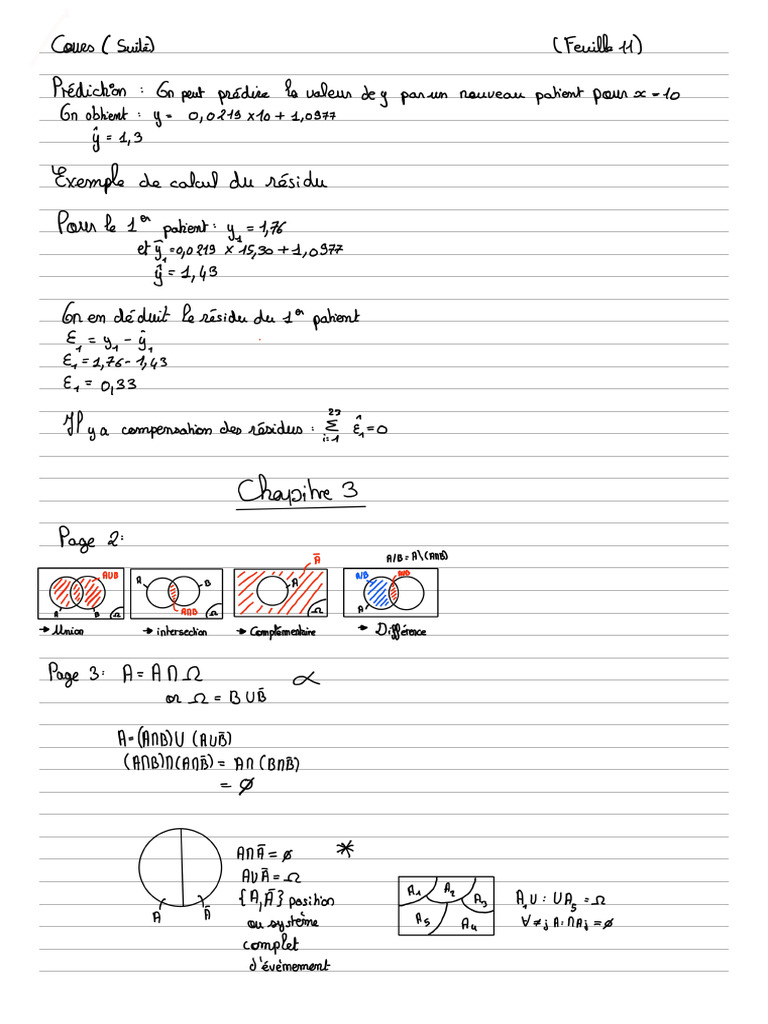 Cours (Suite) (Feuille 11)
Prédiction : On peut prédire la valeur de y par un nouveau patient pour x = 10
On obtient : y = 0,0219 x 10 + 1,0977
ŷ = 1,3
Exemple de calcul du résidu
Pour le 1er patient : y₁ = 1,76
et ŷ₁ = 0,0219 x 15,30 + 1,0977
ŷ = 1,43
On en déduit le résidu du 1er patient
Ɛ₁ = y₁ - ŷ₁
Ɛ₁ = 1,76 - 1,43
Ɛ₁ = 0,33
Il y a compensation des résidus : 23 Σ i=1 Ɛ̂₁ = 0
Chapitre 3
Page 2:
A∪B A B Ω
A B A∩B
Ā A Ω
A/B = A\(A∩B)
A/B A∩B A
→ Union → intersection → Complémentaire → Différence
Page 3: A = A∩Ω ∝
or Ω = B∪B̄
A = (A∩B)∪(A∪B̄)
(A∩B)∩(A∩B̄) = A∩(B∩B̄)
= ∅
A Ā
A∩Ā = ∅ *
A∪Ā = Ω
{A,Ā} position
ou système
complet
d'évènement
A₁ A₂ A₃
A₅ A₄
A₁∪ : ∪A₅ = Ω
∀ ≠ j A: ∩Aj = ∅